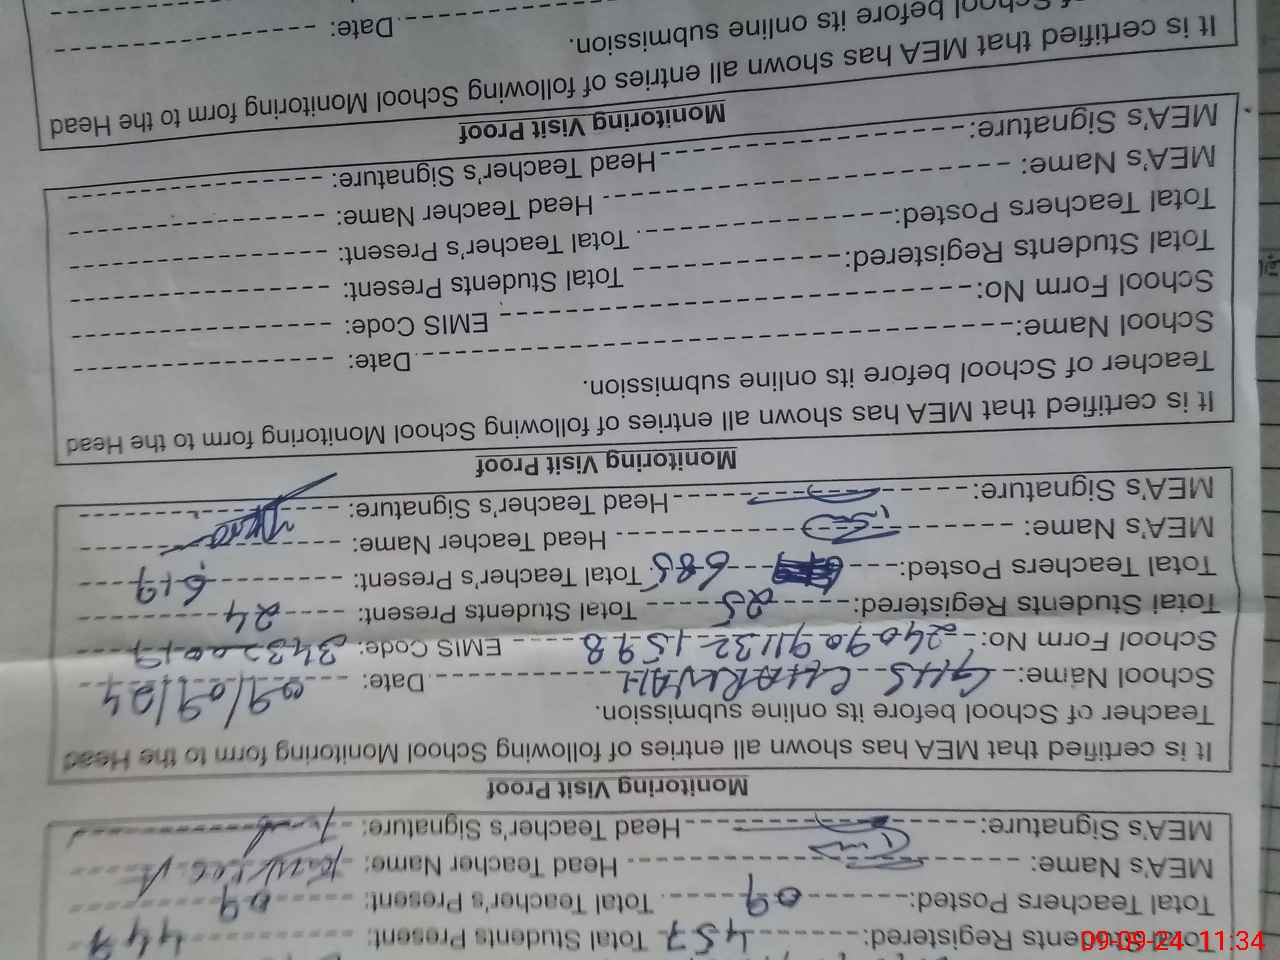 Total Students Registered: 457 Total Students Present: 447
Total Teachers Posted: 09 Total Teacher's Present: 09
MEA's Name: Head Teacher Name:
MEA's Signature: Head Teacher's Signature:
Monitoring Visit Proof
It is certified that MEA has shown all entries of following School Monitoring form to the Head
Teacher of School before its online submission.
School Name: GHS CHARKWAH Date: 09/09/24
School Form No: 24090911321598 EMIS Code: 34320019
Total Students Registered: 25 Total Students Present: 24
Total Teachers Posted: 685 Total Teacher's Present: 619
MEA's Name: Head Teacher Name:
MEA's Signature: Head Teacher's Signature:
Monitoring Visit Proof
It is certified that MEA has shown all entries of following School Monitoring form to the Head
Teacher of School before its online submission.
School Name: Date:
School Form No: EMIS Code:
Total Students Registered: Total Students Present:
Total Teachers Posted: Total Teacher's Present:
MEA's Name: Head Teacher Name:
MEA's Signature: Head Teacher's Signature:
Monitoring Visit Proof
It is certified that MEA has shown all entries of following School Monitoring form to the Head
of School before its online submission.
Date:
09-09-24 11:34